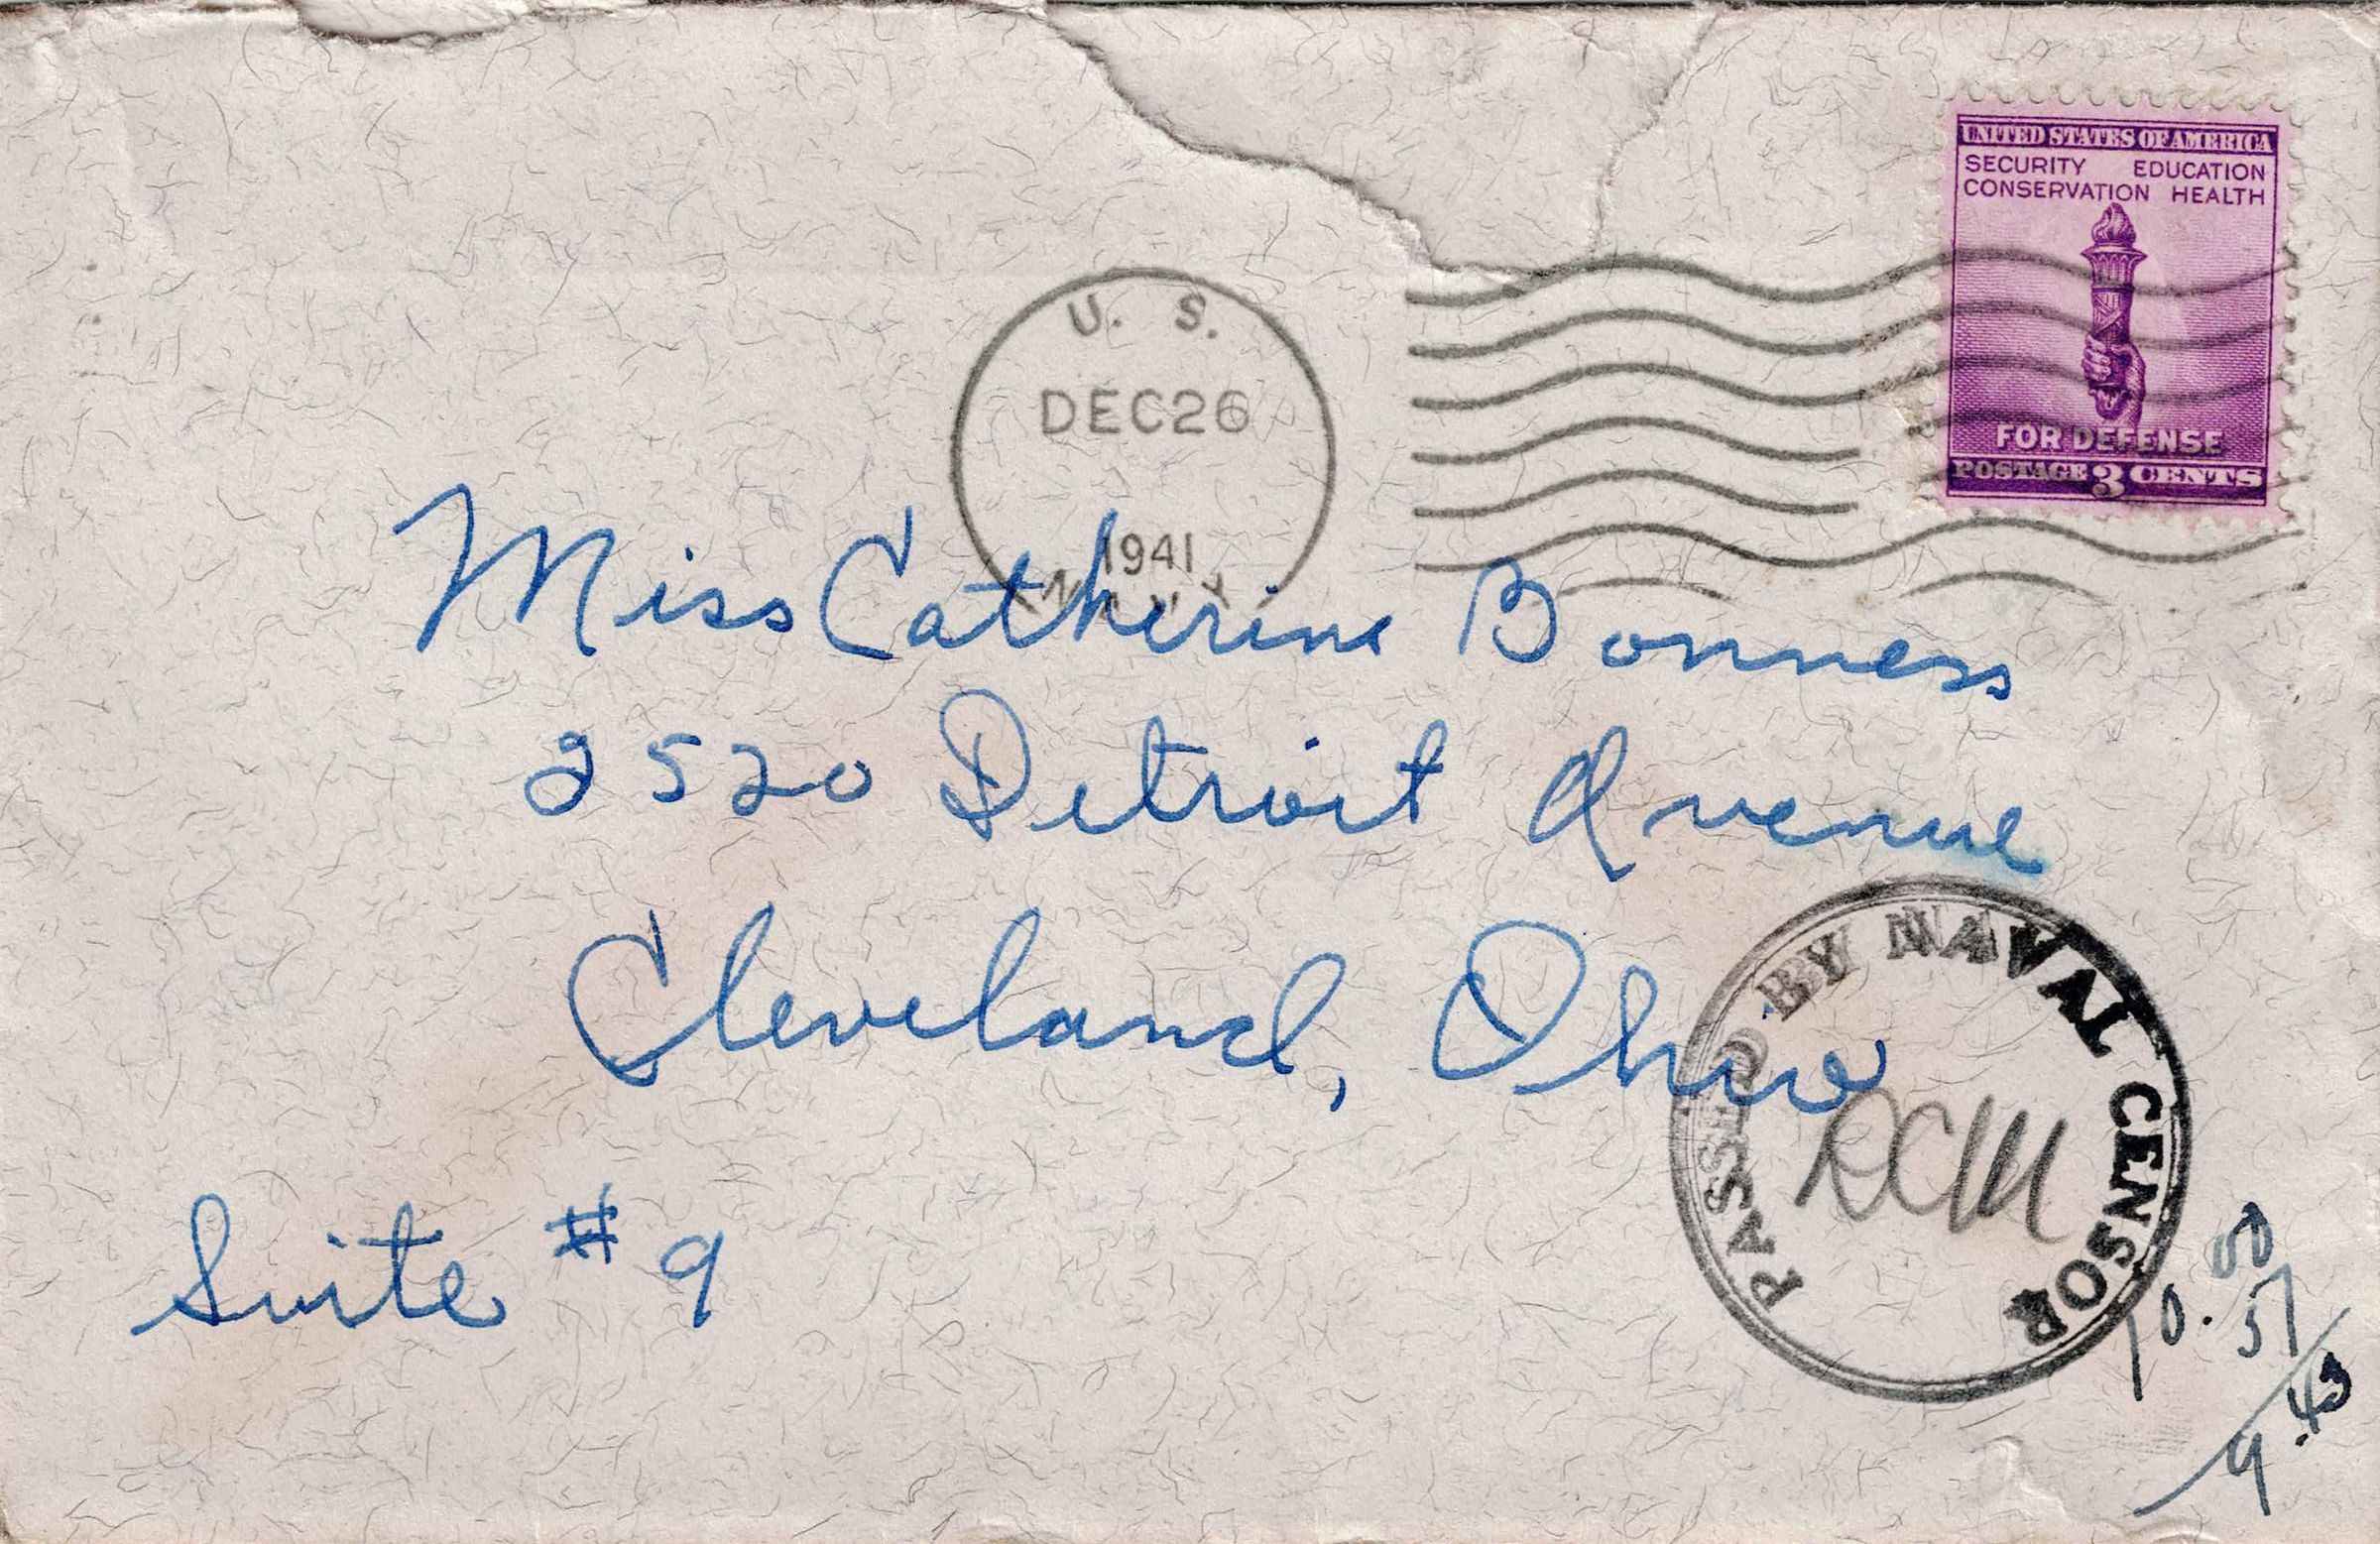 UNITED STATES OF AMERICA
SECURITY EDUCATION
CONSERVATION HEALTH
FOR DEFENSE
POSTAGE 3 CENTS
U. S.
DEC 26
1941
NAVY
Miss Catherine Bonness
2520 Detroit Avenue
Cleveland, Ohio
Suite #9
PASSED BY NAVAL CENSOR
RCM
10.00
57
9.43